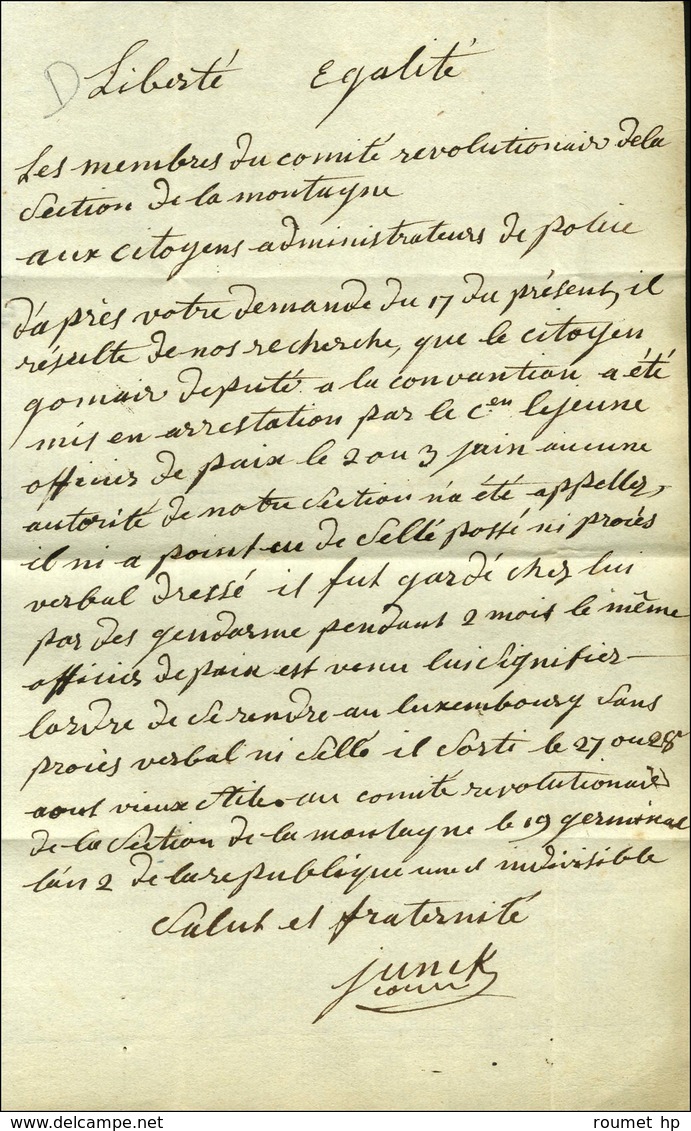 D Liberté Egalité
Les membres du comité revolutionair dela
Section de la montagne
aux citoyens administrateurs de police
d'a près votre demande du 17 du présent, il
résulte de nos recherche, que le citoyen
gomair deputé a la convantion a été
mis en arrestation par le c.en lejeune
officier de paix le 2 ou 3 juin aucune
autorité de notre Section n'a été appellez,
il ni a point eu de Sellé possé ni procès
verbal dressé il fut gardé chez lui
par des gendarme pendant 2 mois le même
officier de paix est venu lui Signifier
l'ordre de Se rendre au luxembourg Sans
procès verbal ni Sellé il Sorti le 27 ou 28
aout vieux Stile. au comité revolutionaire
de la Section de la montagne le 19 germinal
l'an 2 de la republique une et indivisible
Salut et fraternité
junck
roumet hp